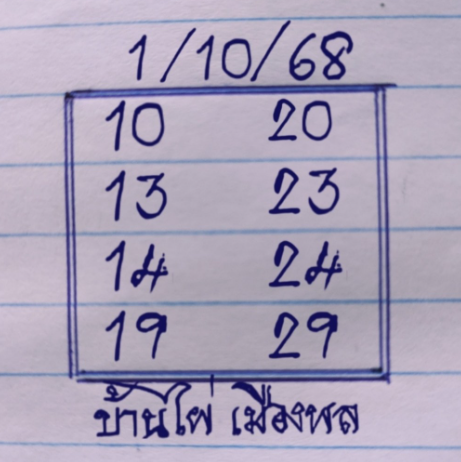 1/10/68
10 20
13 23
14 24
19 29
บ้านไผ่ เมืองพล